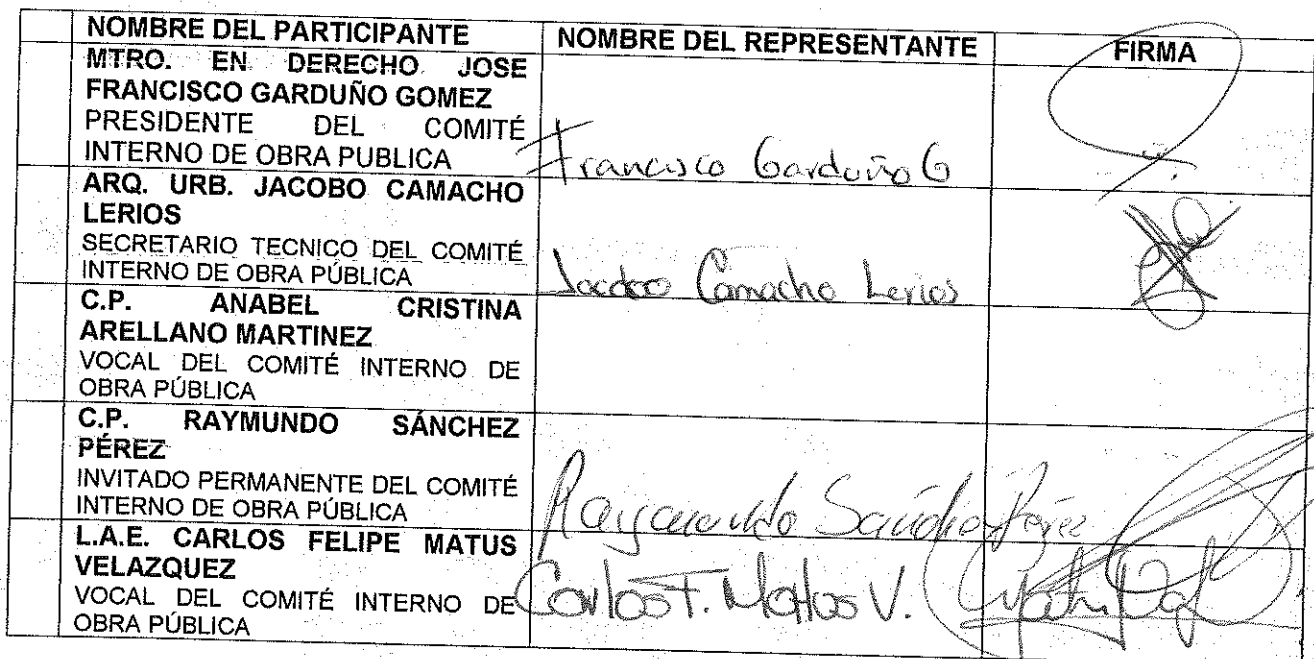 NOMBRE DEL PARTICIPANTE NOMBRE DEL REPRESENTANTE FIRMA
MTRO. EN DERECHO JOSE
FRANCISCO GARDUÑO GOMEZ
PRESIDENTE DEL COMITÉ
INTERNO DE OBRA PUBLICA
Francisco Garduño G
ARQ. URB. JACOBO CAMACHO
LERIOS
SECRETARIO TECNICO DEL COMITÉ
INTERNO DE OBRA PÚBLICA
Jacobo Camacho Lerios
C.P. ANABEL CRISTINA
ARELLANO MARTINEZ
VOCAL DEL COMITÉ INTERNO DE
OBRA PÚBLICA
C.P. RAYMUNDO SÁNCHEZ
PÉREZ
INVITADO PERMANENTE DEL COMITÉ
INTERNO DE OBRA PÚBLICA
Raymundo Sánchez Pérez
L.A.E. CARLOS FELIPE MATUS
VELAZQUEZ
VOCAL DEL COMITÉ INTERNO DE
OBRA PÚBLICA
Carlos F. Matus V.